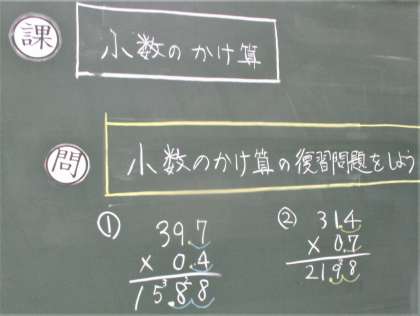 課 小数のかけ算
問 小数のかけ算の復習問題をしよう
① 39.7
× 0.4
15.88
② 31.4
× 0.7
21.98